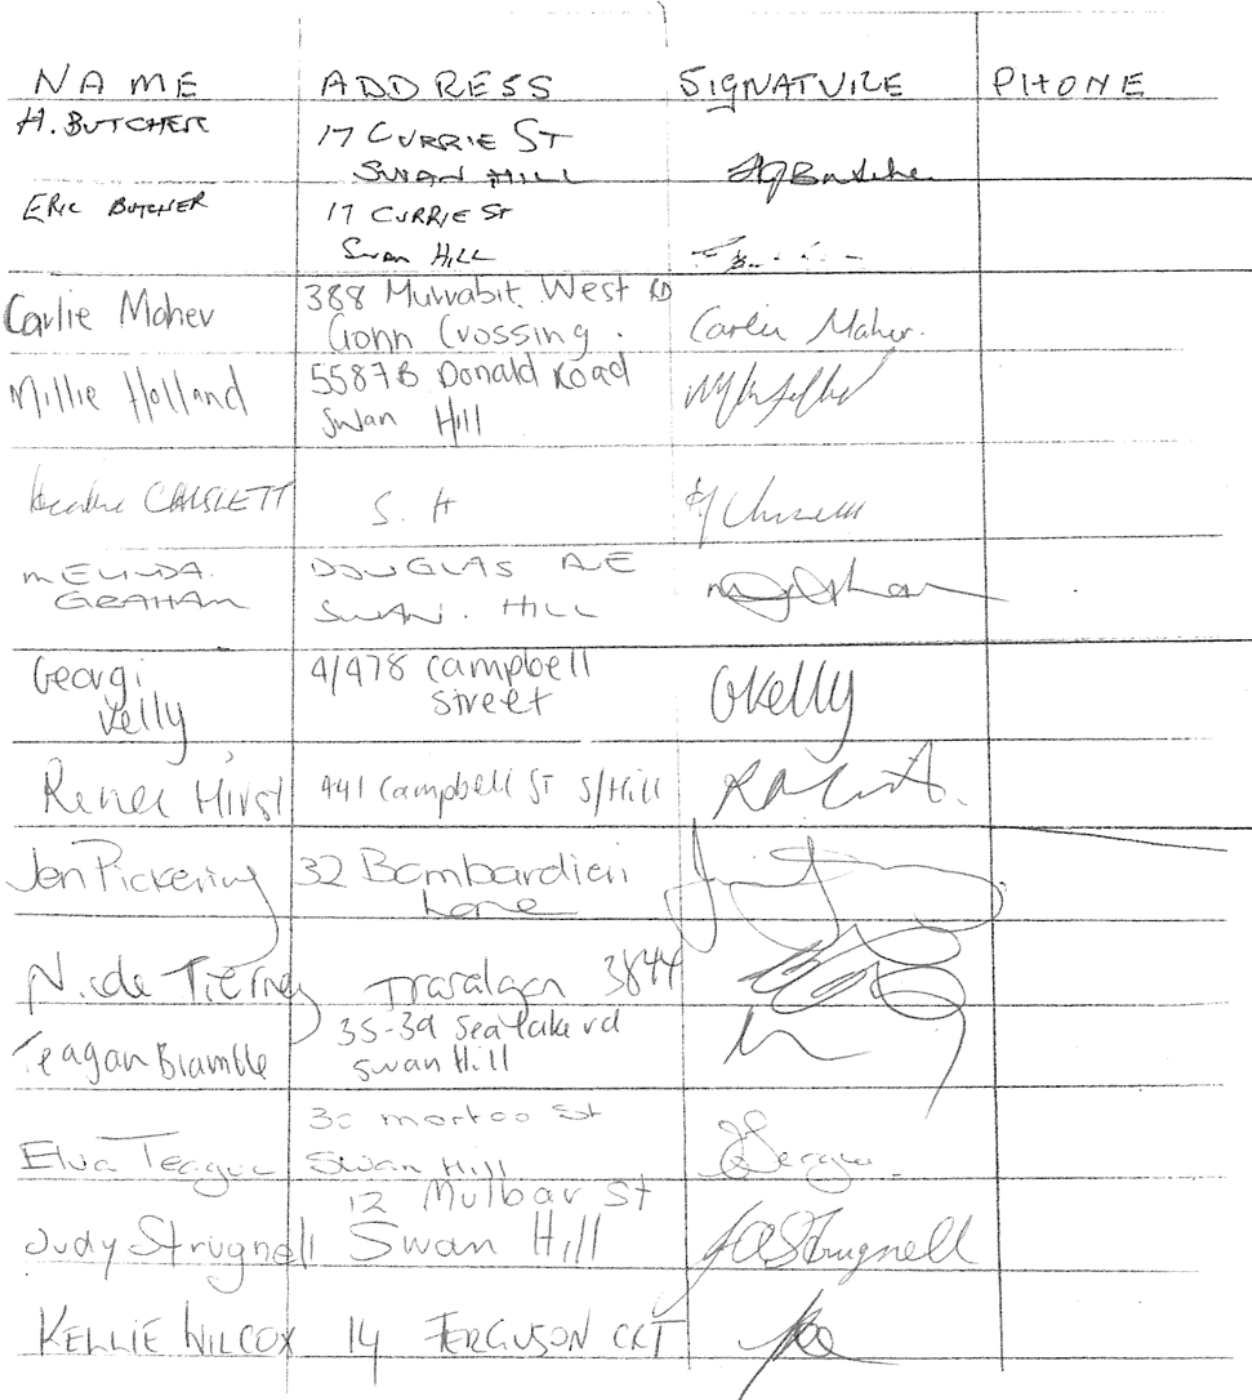 NAME ADDRESS SIGNATURE PHONE
H. BUTCHER 17 CURRIE ST
SWAN HILL HJButcher
ERIC BUTCHER 17 CURRIE ST
Swan Hill
Carlie Maher 388 Murrabit West RD
Gonn Crossing. Carlie Maher.
Millie Holland 5587B Donald Road
Swan Hill
S. H
MELINDA. DOUGLAS AVE
GRAHAM SWAN. HILL
Georgi 4/478 Campbell
Kelly street GKelly
Renee Hirst 441 Campbell ST S/Hill
Jen Pickering 32 Bombardieri
Lane
Nicole Tierney Traralgon 3844
Teagan Bramble 35-39 Sea Lake rd
Swan Hill
St
Elva Teague Swan Hill
12 Mulbar St
Judy Strugnell Swan Hill JAStrugnell
KELLIE WILCOX 14 FERGUSON CRT